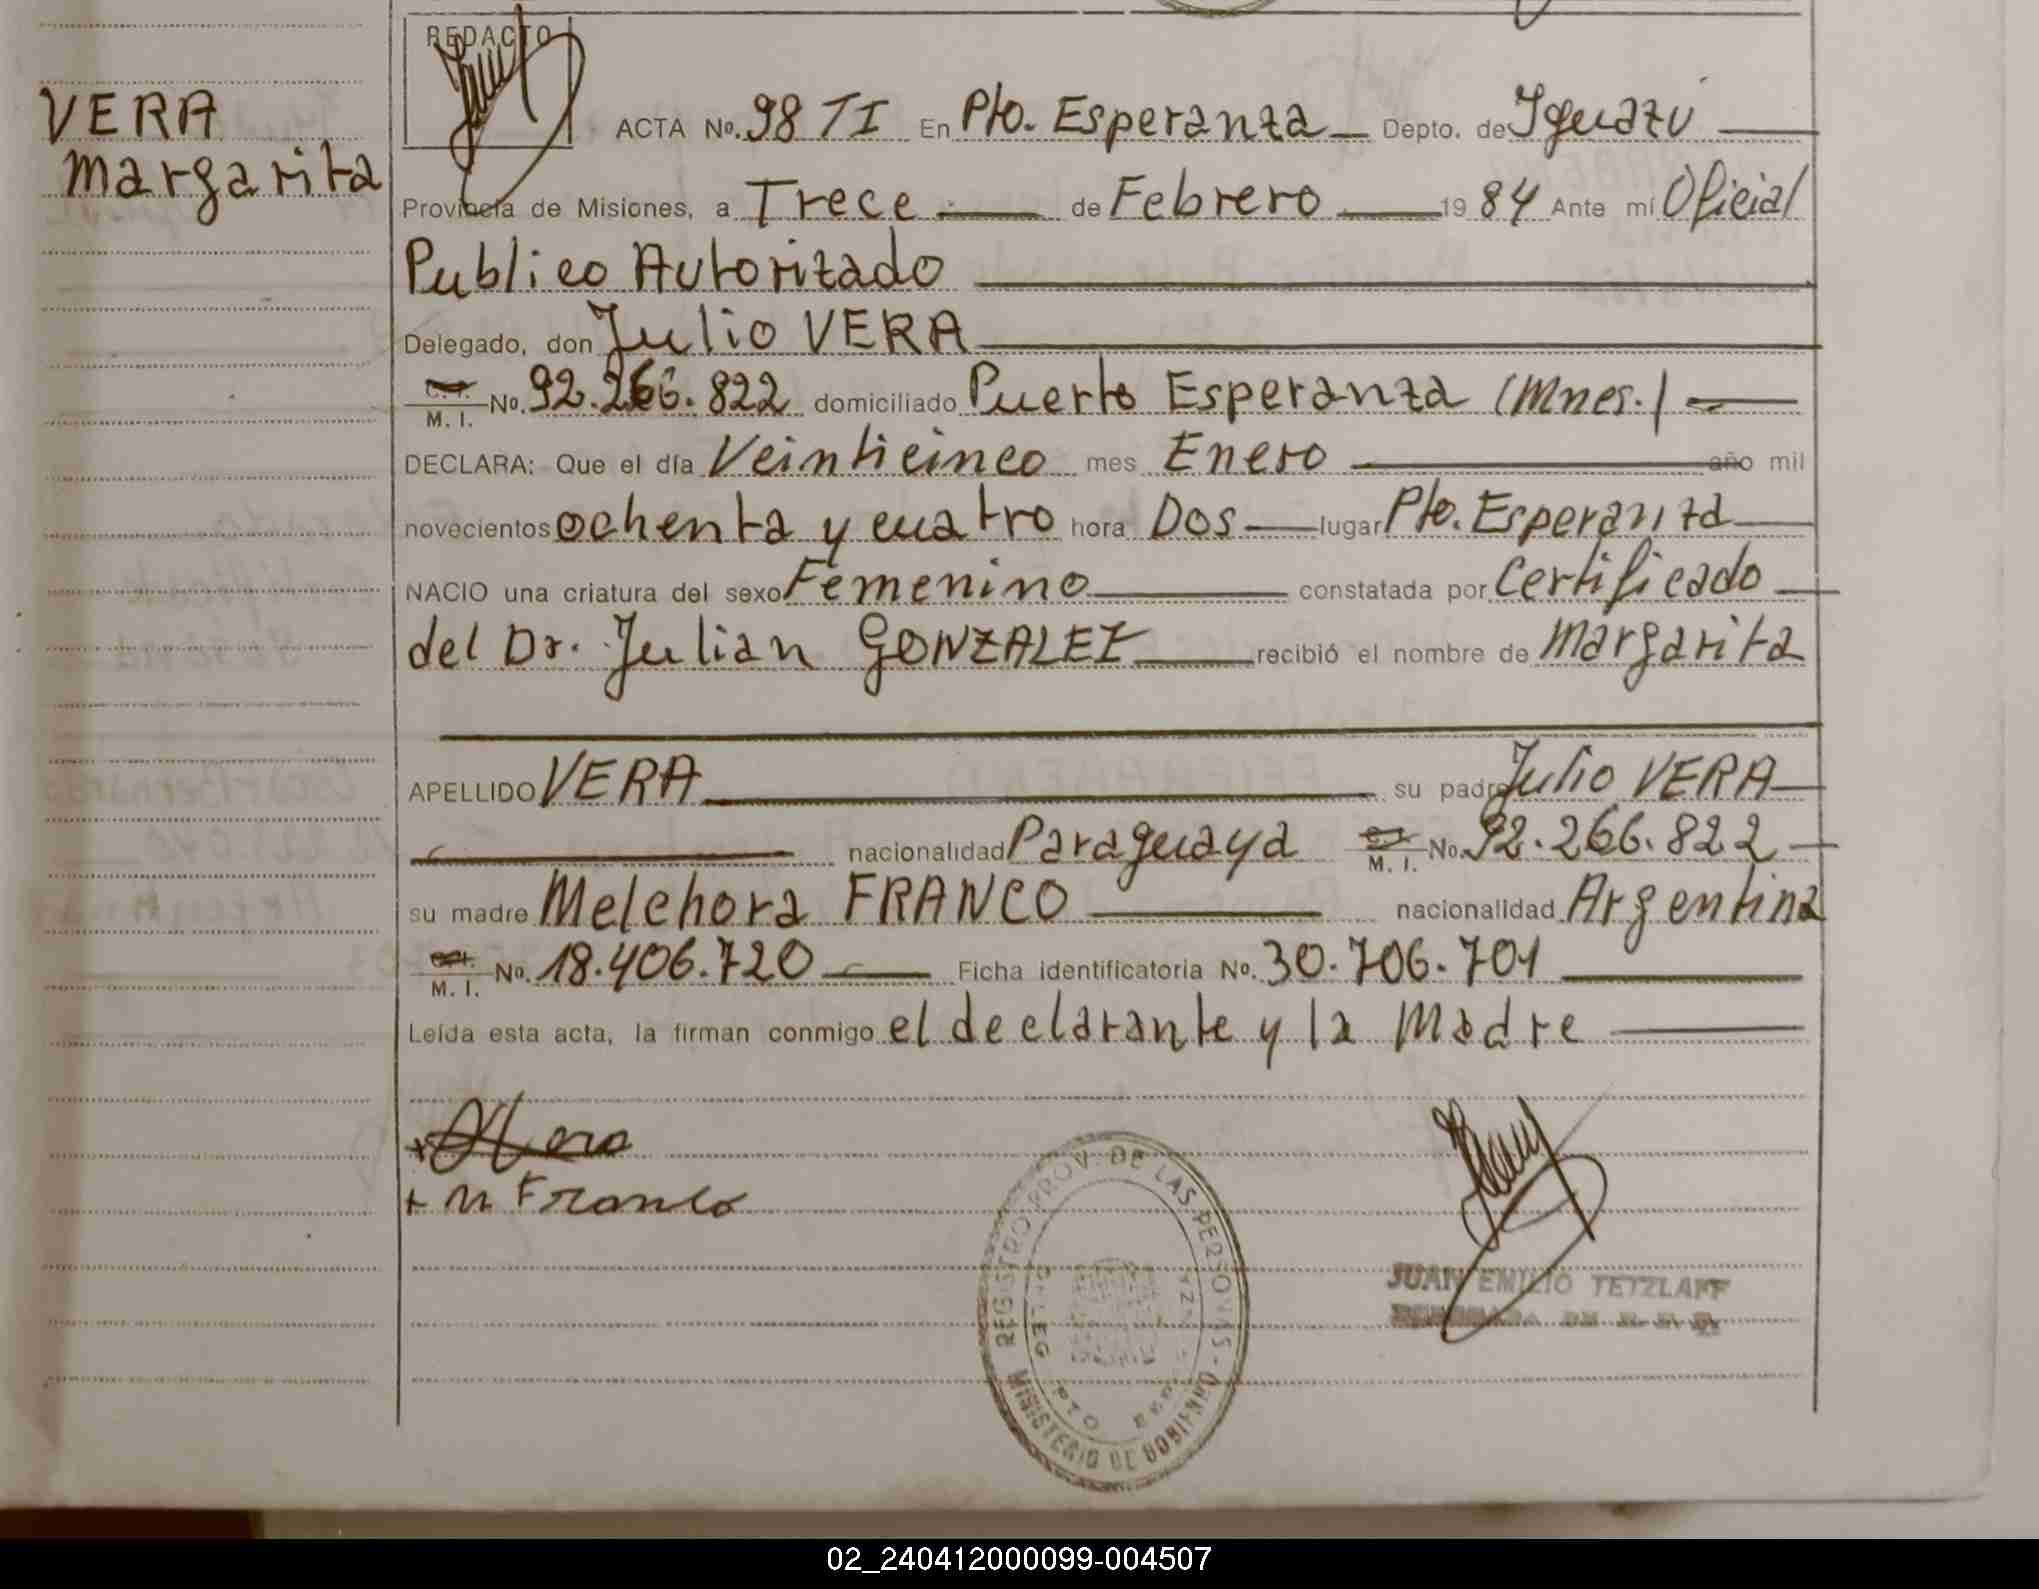 REDACTO
VERA
Margarita
ACTA No. 98 TI En Pto. Esperanza Depto. de Iguazú
Provincia de Misiones, a Trece de Febrero 1984 Ante mí Oficial
Publico Autorizado
Delegado, don Julio VERA
C.I. M. I. No. 92.266.822 domiciliado Puerto Esperanza (Mnes.)
DECLARA: Que el día Veinticinco mes Enero año mil
novecientos ochenta y cuatro hora Dos lugar Pto. Esperanza
NACIO una criatura del sexo Femenino constatada por Certificado
del Dr. Julian GONZALEZ recibió el nombre de Margarita
APELLIDO VERA su padre Julio VERA
nacionalidad Paraguaya M. I. No. 92.266.822
su madre Melchora FRANCO nacionalidad Argentina
M. I. No. 18.406.720 Ficha identificatoria No. 30.706.701
Leída esta acta, la firman conmigo el declarante y la Madre
+ Vera
+ M Franco
REGISTRO PROV. DE LAS PERSONAS - MINISTERIO DE GOBIERNO
JUAN EMILIO TETZLAFF
02_240412000099-004507